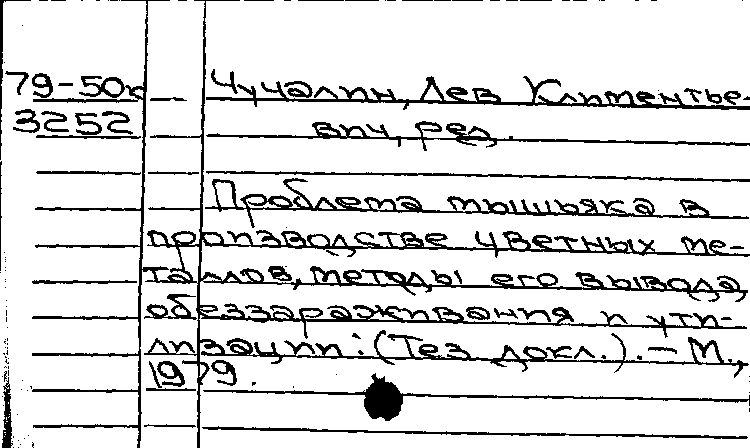 79-50к Чучалин, Лев Климентье-
3252 вич, ред.
Проблема мышьяка в
производстве цветных ме-
таллов, методы его вывода,
обеззараживания и ути-
лизации: (Тез докл.). – М.,
1979.